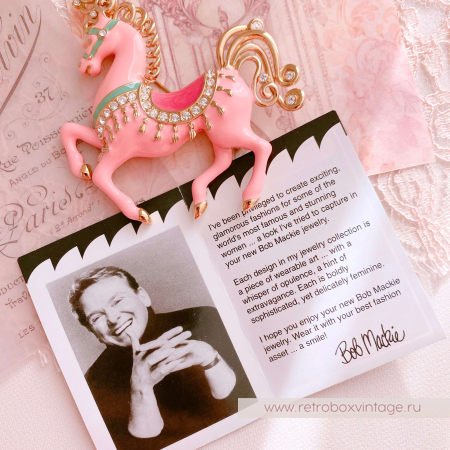 37.
Paris
I've been privileged to create exciting,
glamorous fashions for some of the
world's most famous and stunning
women ... a look I've tried to capture in
your new Bob Mackie jewelry.
Each design in my jewelry collection is
a piece of wearable art ... with a
whisper of opulence, a hint of
extravagance. Each is boldly
sophisticated, yet delicately feminine.
I hope you enjoy your new Bob Mackie
jewelry. Wear it with your best fashion
asset ... a smile!
Bob Mackie
www.retroboxvintage.ru